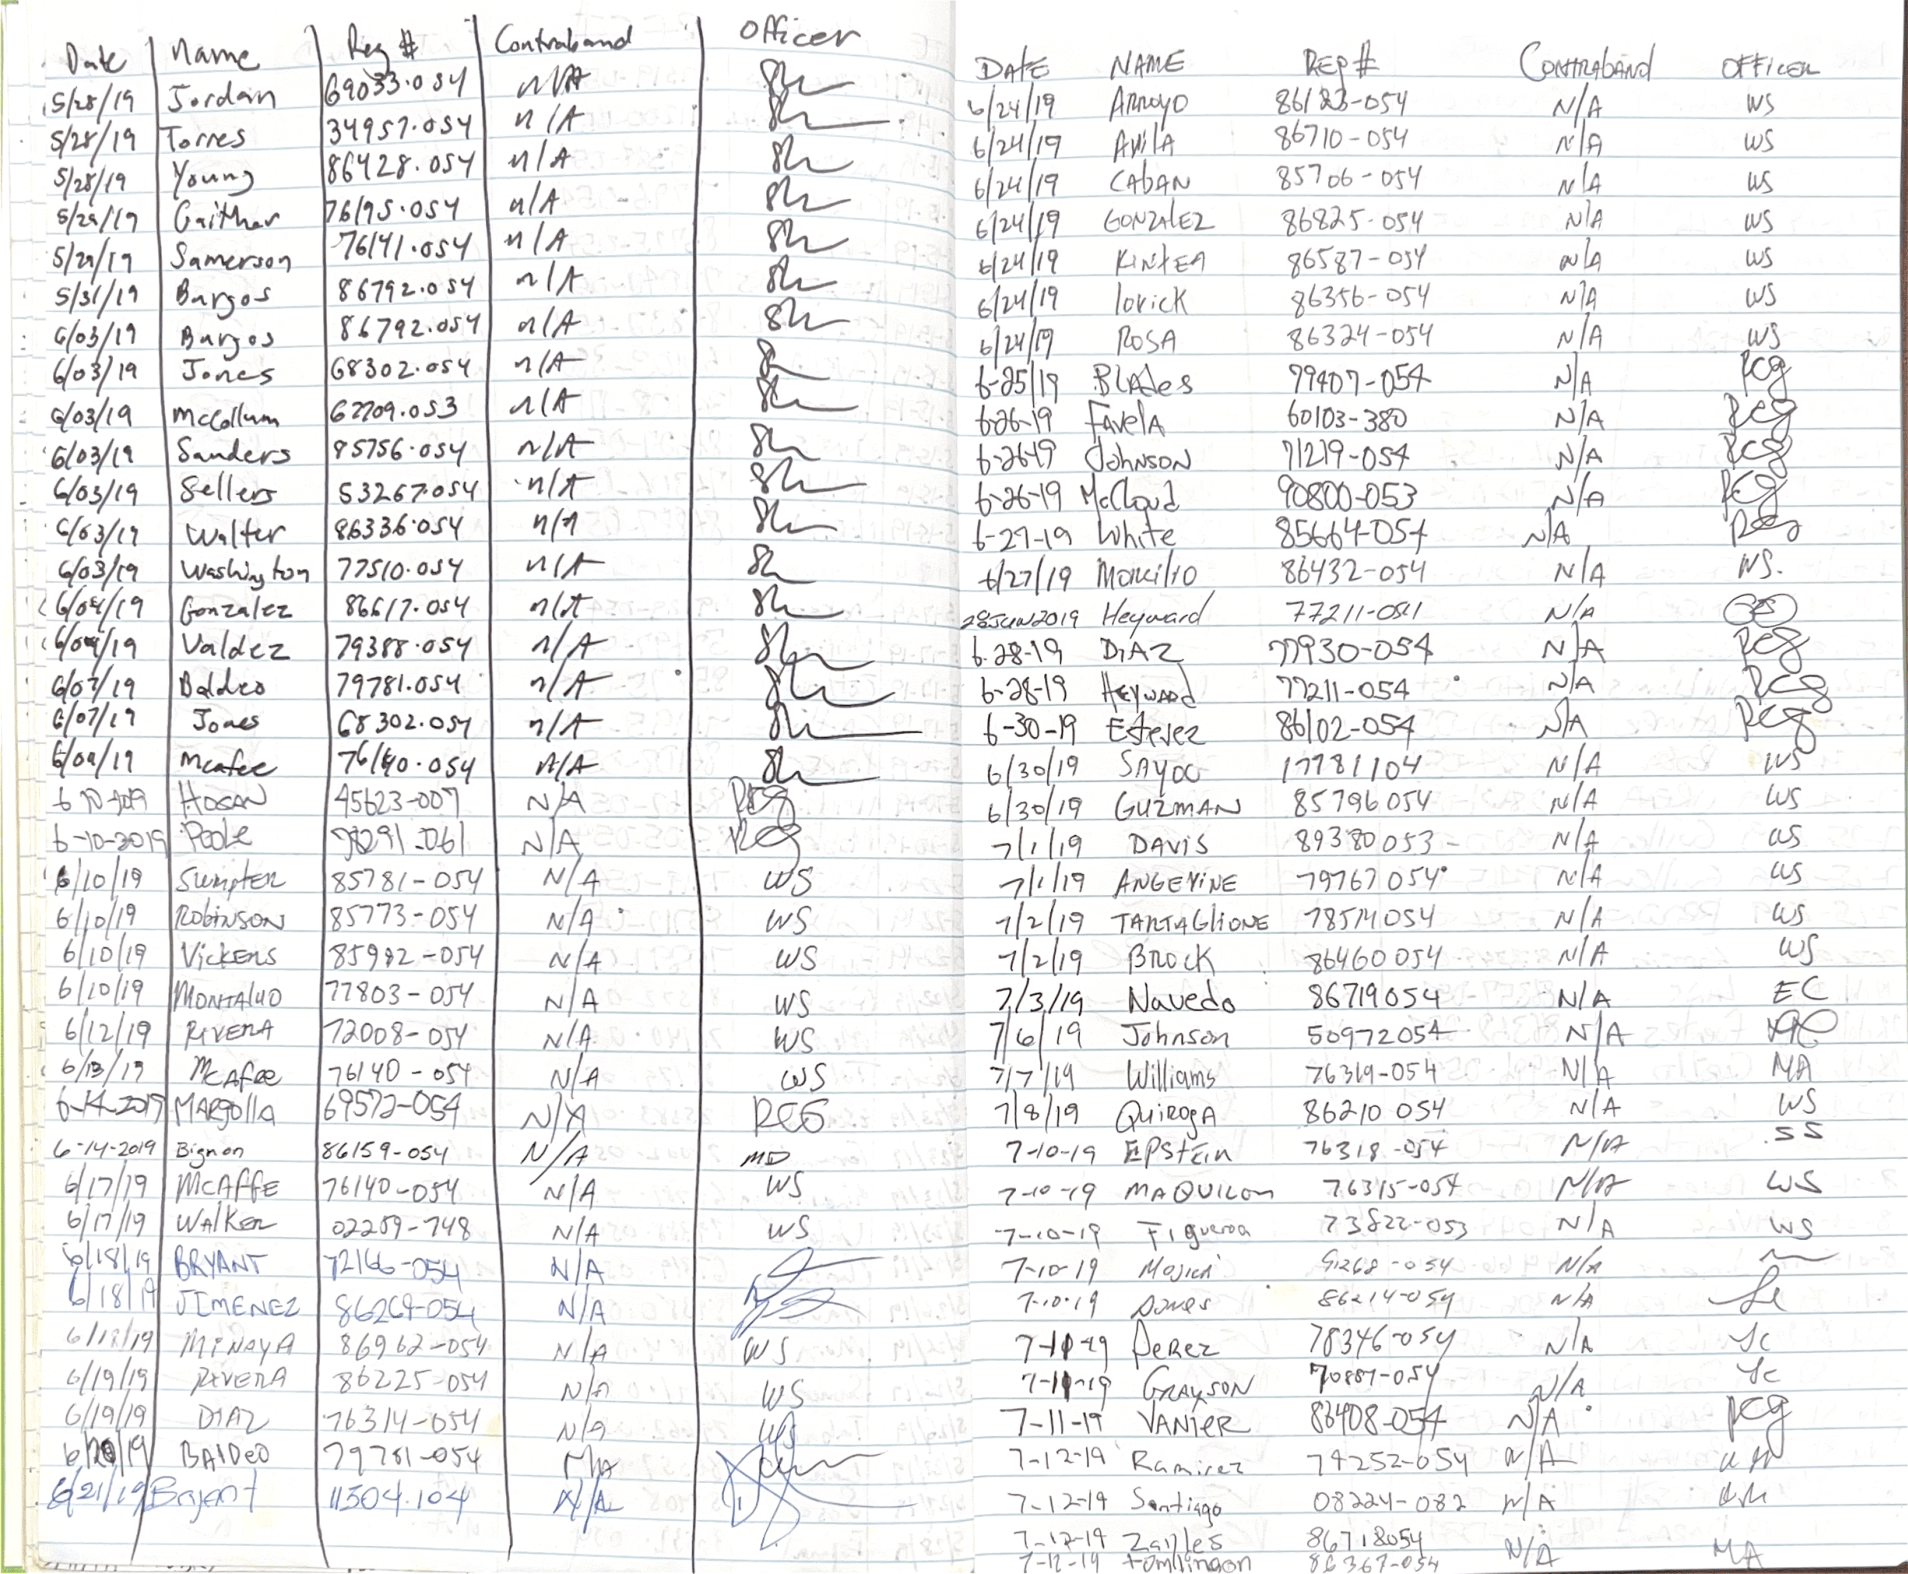 Date Name Reg # Contraband Officer
5/28/19 Jordan 69033.054 n/A
5/28/19 Torres 34957.054 n/A
5/28/19 Young 86428.054 n/A
5/29/19 Gaither 76195.054 n/A
5/29/19 Samerson 76141.054 n/A
5/31/19 Burgos 86792.054 n/A
6/03/19 Burgos 86792.054 n/A
6/03/19 Jones 68302.054 n/A
6/03/19 McCollum 62709.053 n/A
6/03/19 Sanders 85756.054 n/A
6/03/19 Sellers 53267.054 n/A
6/03/19 Walter 86336.054 n/A
6/03/19 Washington 77510.054 n/A
6/04/19 Gonzalez 86617.054 n/A
6/04/19 Valdez 79388.054 n/A
6/07/19 Baldeo 79781.054 n/A
6/07/19 Jones 68302.054 n/A
6/09/19 Mcafee 76140.054 n/A
6-10-2019 HOGAN 45623-007 N/A RCG
6-10-2019 Poole 78291-061 N/A RCG
6/10/19 Sumpter 85781-054 N/A WS
6/10/19 Robinson 85773-054 N/A WS
6/10/19 Vickens 85992-054 N/A WS
6/10/19 MONTALVO 77803-054 N/A WS
6/12/19 RIVERA 72008-054 N/A WS
6/13/19 McAfee 76140-054 N/A WS
6-14-2019 MARGOLLA 69572-054 N/A RCG
6-14-2019 Bignon 86159-054 N/A MD
6/17/19 McAFFE 76140-054 N/A WS
6/17/19 WALKER 02259-748 N/A WS
6/18/19 BRYANT 72166-054 N/A
6/18/19 JIMENEZ 86269-054 N/A
6/18/19 MINAYA 86962-054 N/A WS
6/19/19 RIVERA 86225-054 N/A WS
6/19/19 DIAZ 76314-054 N/A WS
6/20/19 BALDEO 79781-054 N/A
6/21/19 Bryant 11504.104 N/A
DATE NAME REG # CONTRABAND OFFICER
6/24/19 ARROYO 86123-054 N/A WS
6/24/19 AVILA 86710-054 N/A WS
6/24/19 CABAN 85706-054 N/A WS
6/24/19 GONZALEZ 86825-054 N/A WS
6/24/19 KINTEA 86587-054 N/A WS
6/24/19 lorick 86356-054 N/A WS
6/24/19 ROSA 86324-054 N/A WS
6-25/19 BLADES 79407-054 N/A RCG
6-26-19 FAVELA 60103-380 N/A RCG
6-26-19 JOHNSON 71219-054 N/A RCG
6-26-19 McCloud 90800-053 N/A RCG
6-27-19 White 85664-054 N/A RCG
6/27/19 86432-054 N/A WS.
28JUN2019 Heyward 77211-054 N/A
6-28-19 DIAZ 77930-054 N/A RCG
6-28-19 HEYWARD 77211-054 N/A RCG
6-30-19 Estevez 86102-054 N/A RCG
6/30/19 SAYOC 17781104 N/A WS
6/30/19 GUZMAN 85796054 N/A WS
7/1/19 DAVIS 89380053 - N/A WS
7/1/19 ANGEVINE 79767054 N/A WS
7/2/19 TARTAGLIONE 78514054 N/A WS
7/2/19 BROCK 86460054 N/A WS
7/3/19 Navedo 86719054 N/A EC
7/6/19 Johnson 50972054 N/A
7/7/19 Williams 76319-054 N/A MA
7/8/19 QUIROGA 86210 054 N/A WS
7-10-19 EPSTEIN 76318-054 N/A SS
7-10-19 MAQUILON 76315-054 N/A WS
7-10-19 Figueroa 73822-053 N/A WS
7-10-19 Mojica 91268-054 N/A
7-10-19 86214-054 N/A
7-11-19 Perez 78346-054 N/A
7-11-19 GRAYSON 70887-054 N/A
7-11-19 VANIER 86408-054 N/A RCG
7-12-19 Ramirez 79252-054 N/A
7-12-19 Santiago 08224-082 N/A
7-12-19 86718054
7-12-19 Tomlinson 86367-054 N/A MA